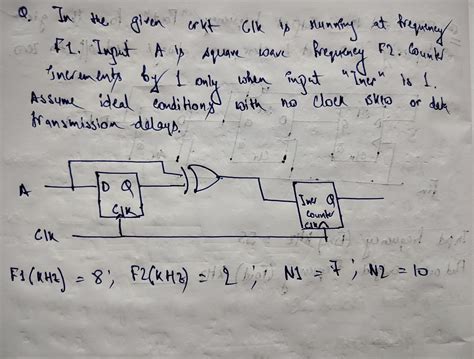 Q. In the given crkt Clk is running at frequency
F1. Input A is square wave frequency F2. Counter
increments by 1 only when input "Incr" is 1.
Assume ideal conditions with no clock skew or data
transmission delays.
A
D Q
Clk
Incr Q
counter
Clk
Clk
F1(KHz) = 8; F2(KHz) = 2; N1 = 7; N2 = 10